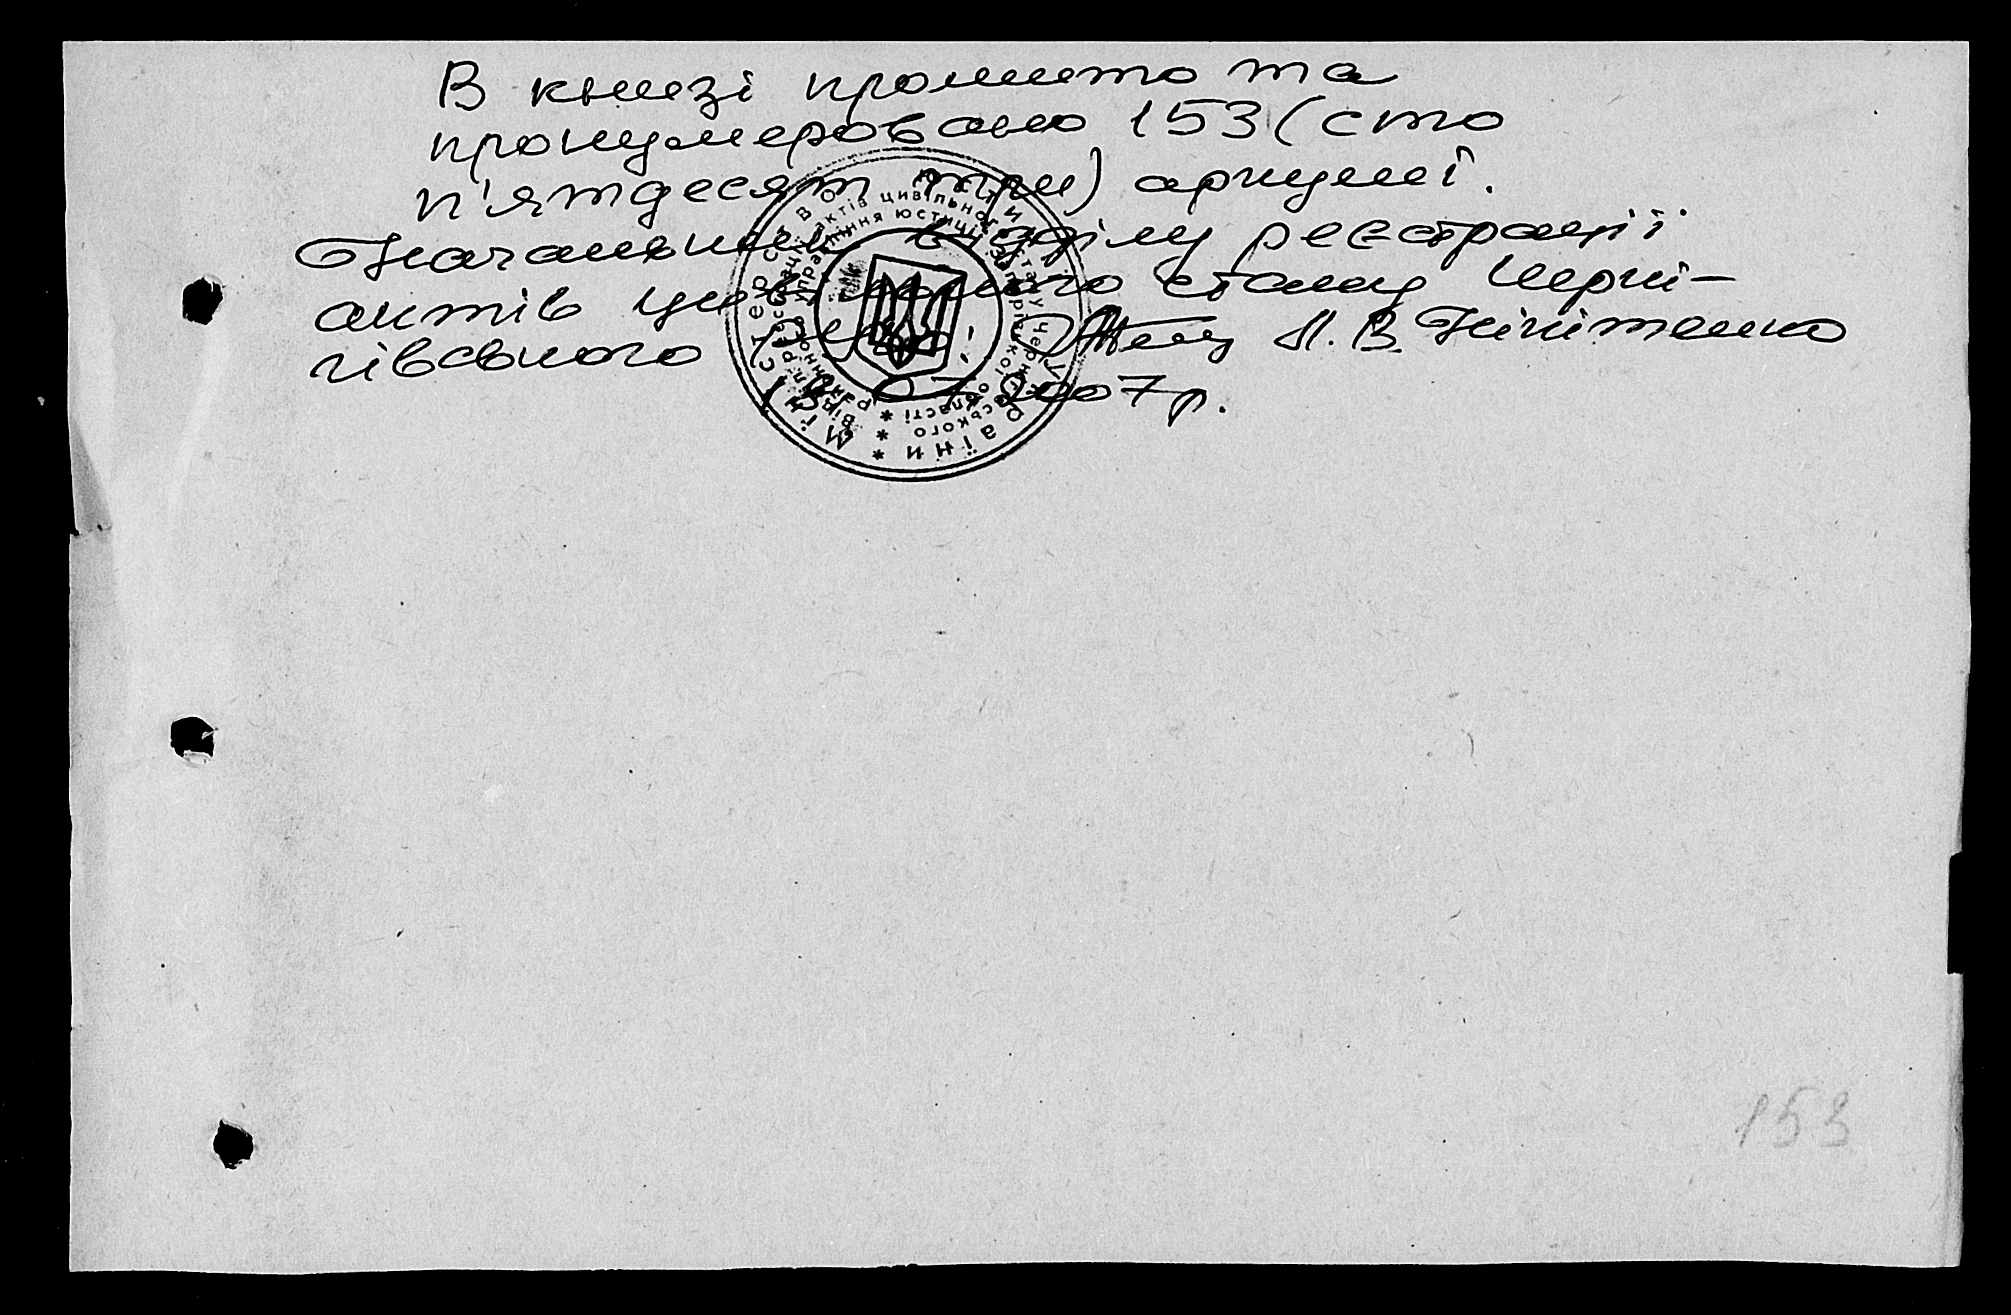 В книзі прошито та
пронумеровано 153 (сто
п'ятдесят три) аркуші.
Начальник відділу реєстрації
актів цивільного стану Черні-
гівського Л. В. Нікітенко
07. 2007 р.
Міністерство юстиції України *
Відділ реєстрації актів цивільного стану Чернігівського *
районного управління юстиції Запорізької області *
153